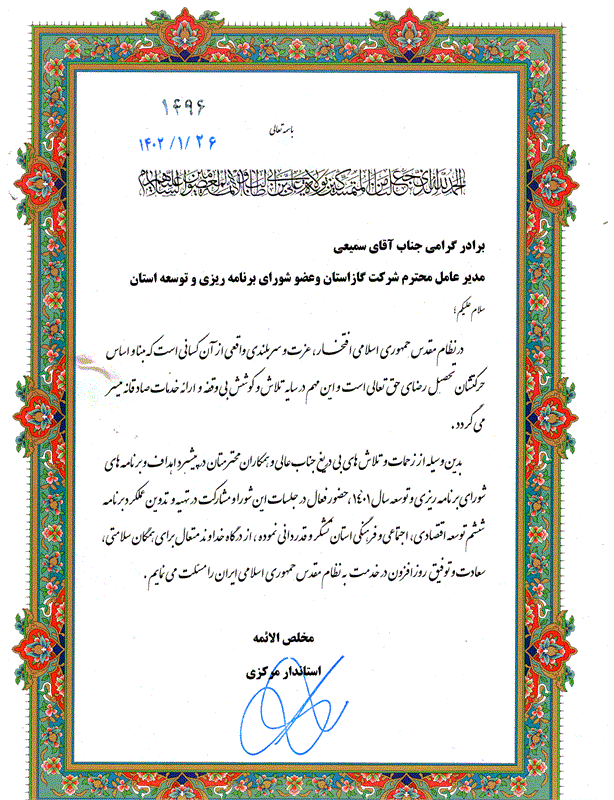 ۱۴۹۶
باسمه تعالی
۱۴۰۲/۱/۲۶
الحمدلله الذی جعلنا من المتمسکین بولایة علی بن ابی طالب و الائمة المعصومین علیهم السلام
برادر گرامی جناب آقای سمیعی
مدیر عامل محترم شرکت گازاستان وعضو شورای برنامه ریزی و توسعه استان
سلام علیکم؛
در نظام مقدس جمهوری اسلامی افتخار، عزت و سربلندی واقعی از آن کسانی است که مبنا و اساس
حرکتشان تحصیل رضای حق تعالی است و این مهم در سایه تلاش و کوشش بی وقفه و ارائه خدمات صادقانه میسر
می گردد.
بدین وسیله از زحمات و تلاش های بی دریغ جناب عالی و همکاران محترمتان در پیشبرد اهداف و برنامه های
شورای برنامه ریزی و توسعه سال ۱۴۰۱، حضور فعال در جلسات این شورا و مشارکت در تهیه و تدوین عملکرد برنامه
ششم توسعه اقتصادی، اجتماعی و فرهنگی استان تشکر و قدردانی نموده، از درگاه خداوند متعال برای همگان سلامتی،
سعادت و توفیق روزافزون در خدمت به نظام مقدس جمهوری اسلامی ایران را مسئلت می نمایم.
مخلص الائمه
استاندار مرکزی